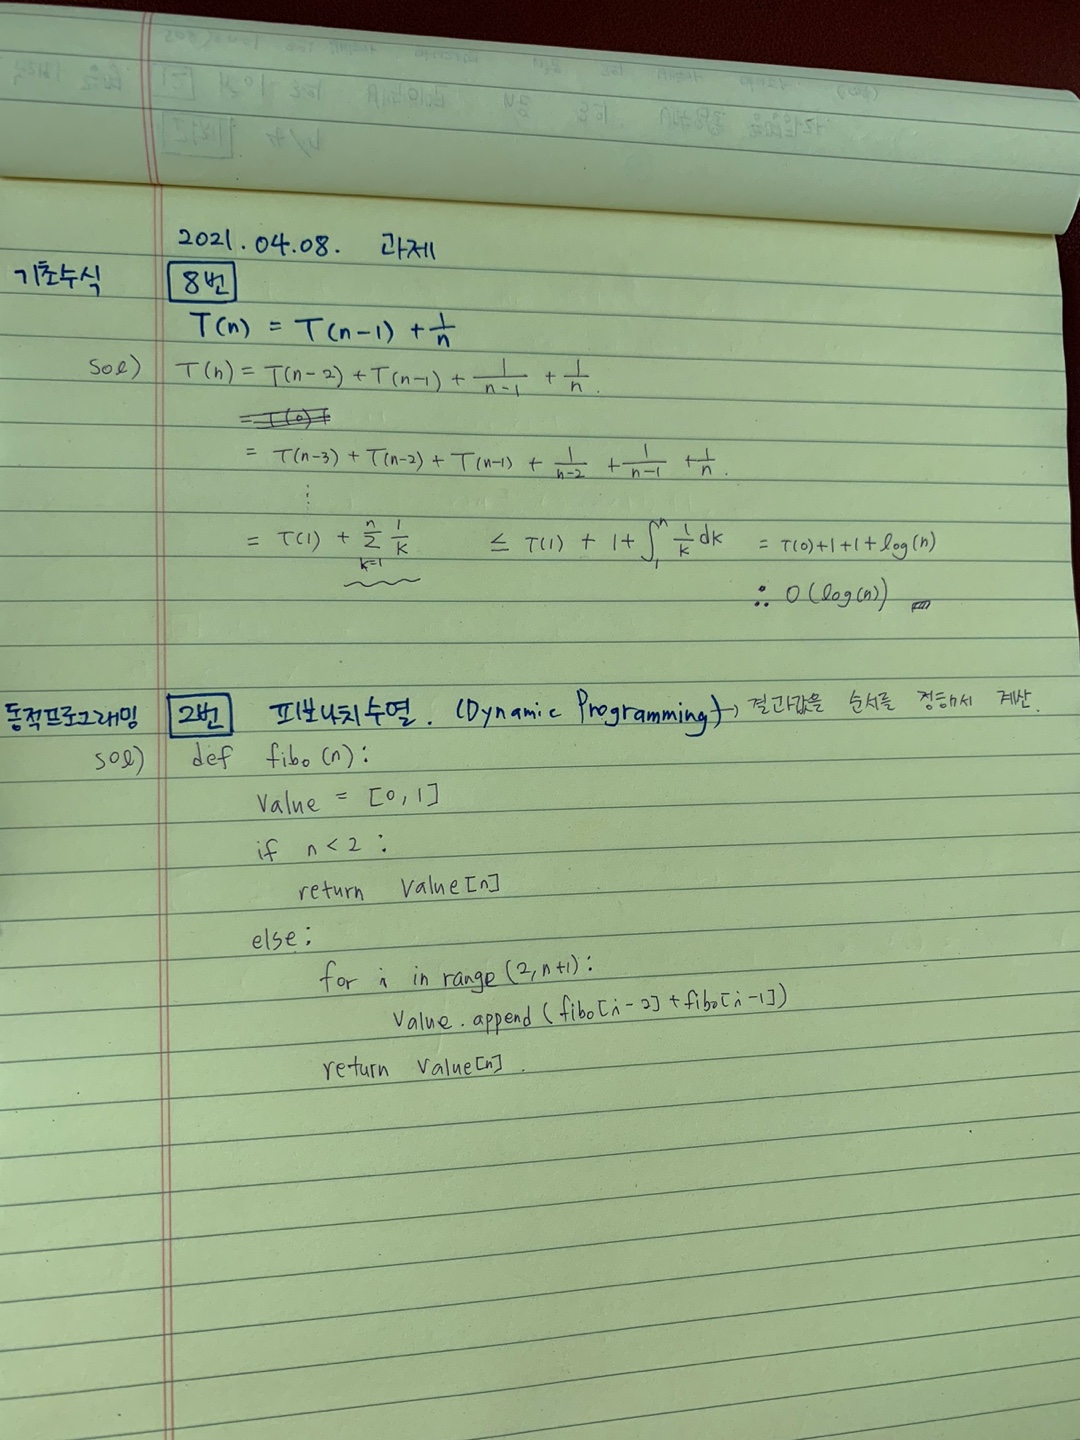 2021.04.08. 과제
기초수식 8번
T(n) = T(n-1) + 1/n
sol) T(n) = T(n-2) + T(n-1) + 1/(n-1) + 1/n.
= T(0) +
= T(n-3) + T(n-2) + T(n-1) + 1/(n-2) + 1/(n-1) + 1/n.
⋮
= T(1) + Σ_{k=1}^{n} 1/k ≤ T(1) + 1 + ∫_1^n 1/k dk = T(0)+1+1+log(n)
∴ O(log(n))
동적프로그래밍 2번 피보나치수열. (Dynamic Programming) → 결과값을 순서를 정해서 계산.
sol) def fibo(n):
value = [0,1]
if n<2 :
return value[n]
else:
for i in range(2,n+1):
value.append(fibo[i-2]+fibo[i-1])
return value[n].